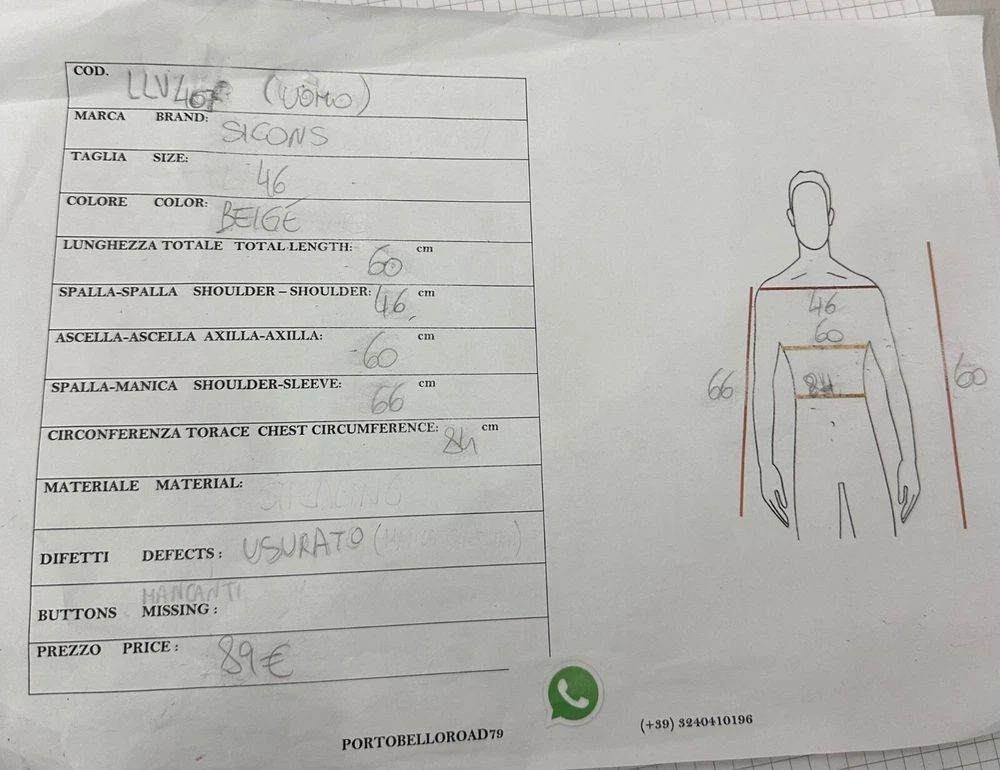 COD. LLV467 (UOMO)
MARCA BRAND: SICONS
TAGLIA SIZE: 46
COLORE COLOR: BEIGE
LUNGHEZZA TOTALE TOTAL LENGTH: 60 cm
SPALLA-SPALLA SHOULDER – SHOULDER: 46 cm
ASCELLA-ASCELLA AXILLA-AXILLA: 60 cm
SPALLA-MANICA SHOULDER-SLEEVE: 66 cm
CIRCONFERENZA TORACE CHEST CIRCUMFERENCE: 84 cm
MATERIALE MATERIAL:
DIFETTI DEFECTS: USURATO
MANCANTI
BUTTONS MISSING:
PREZZO PRICE: 89€
46
60
84
66
60
PORTOBELLOROAD79
(+39) 3240410196